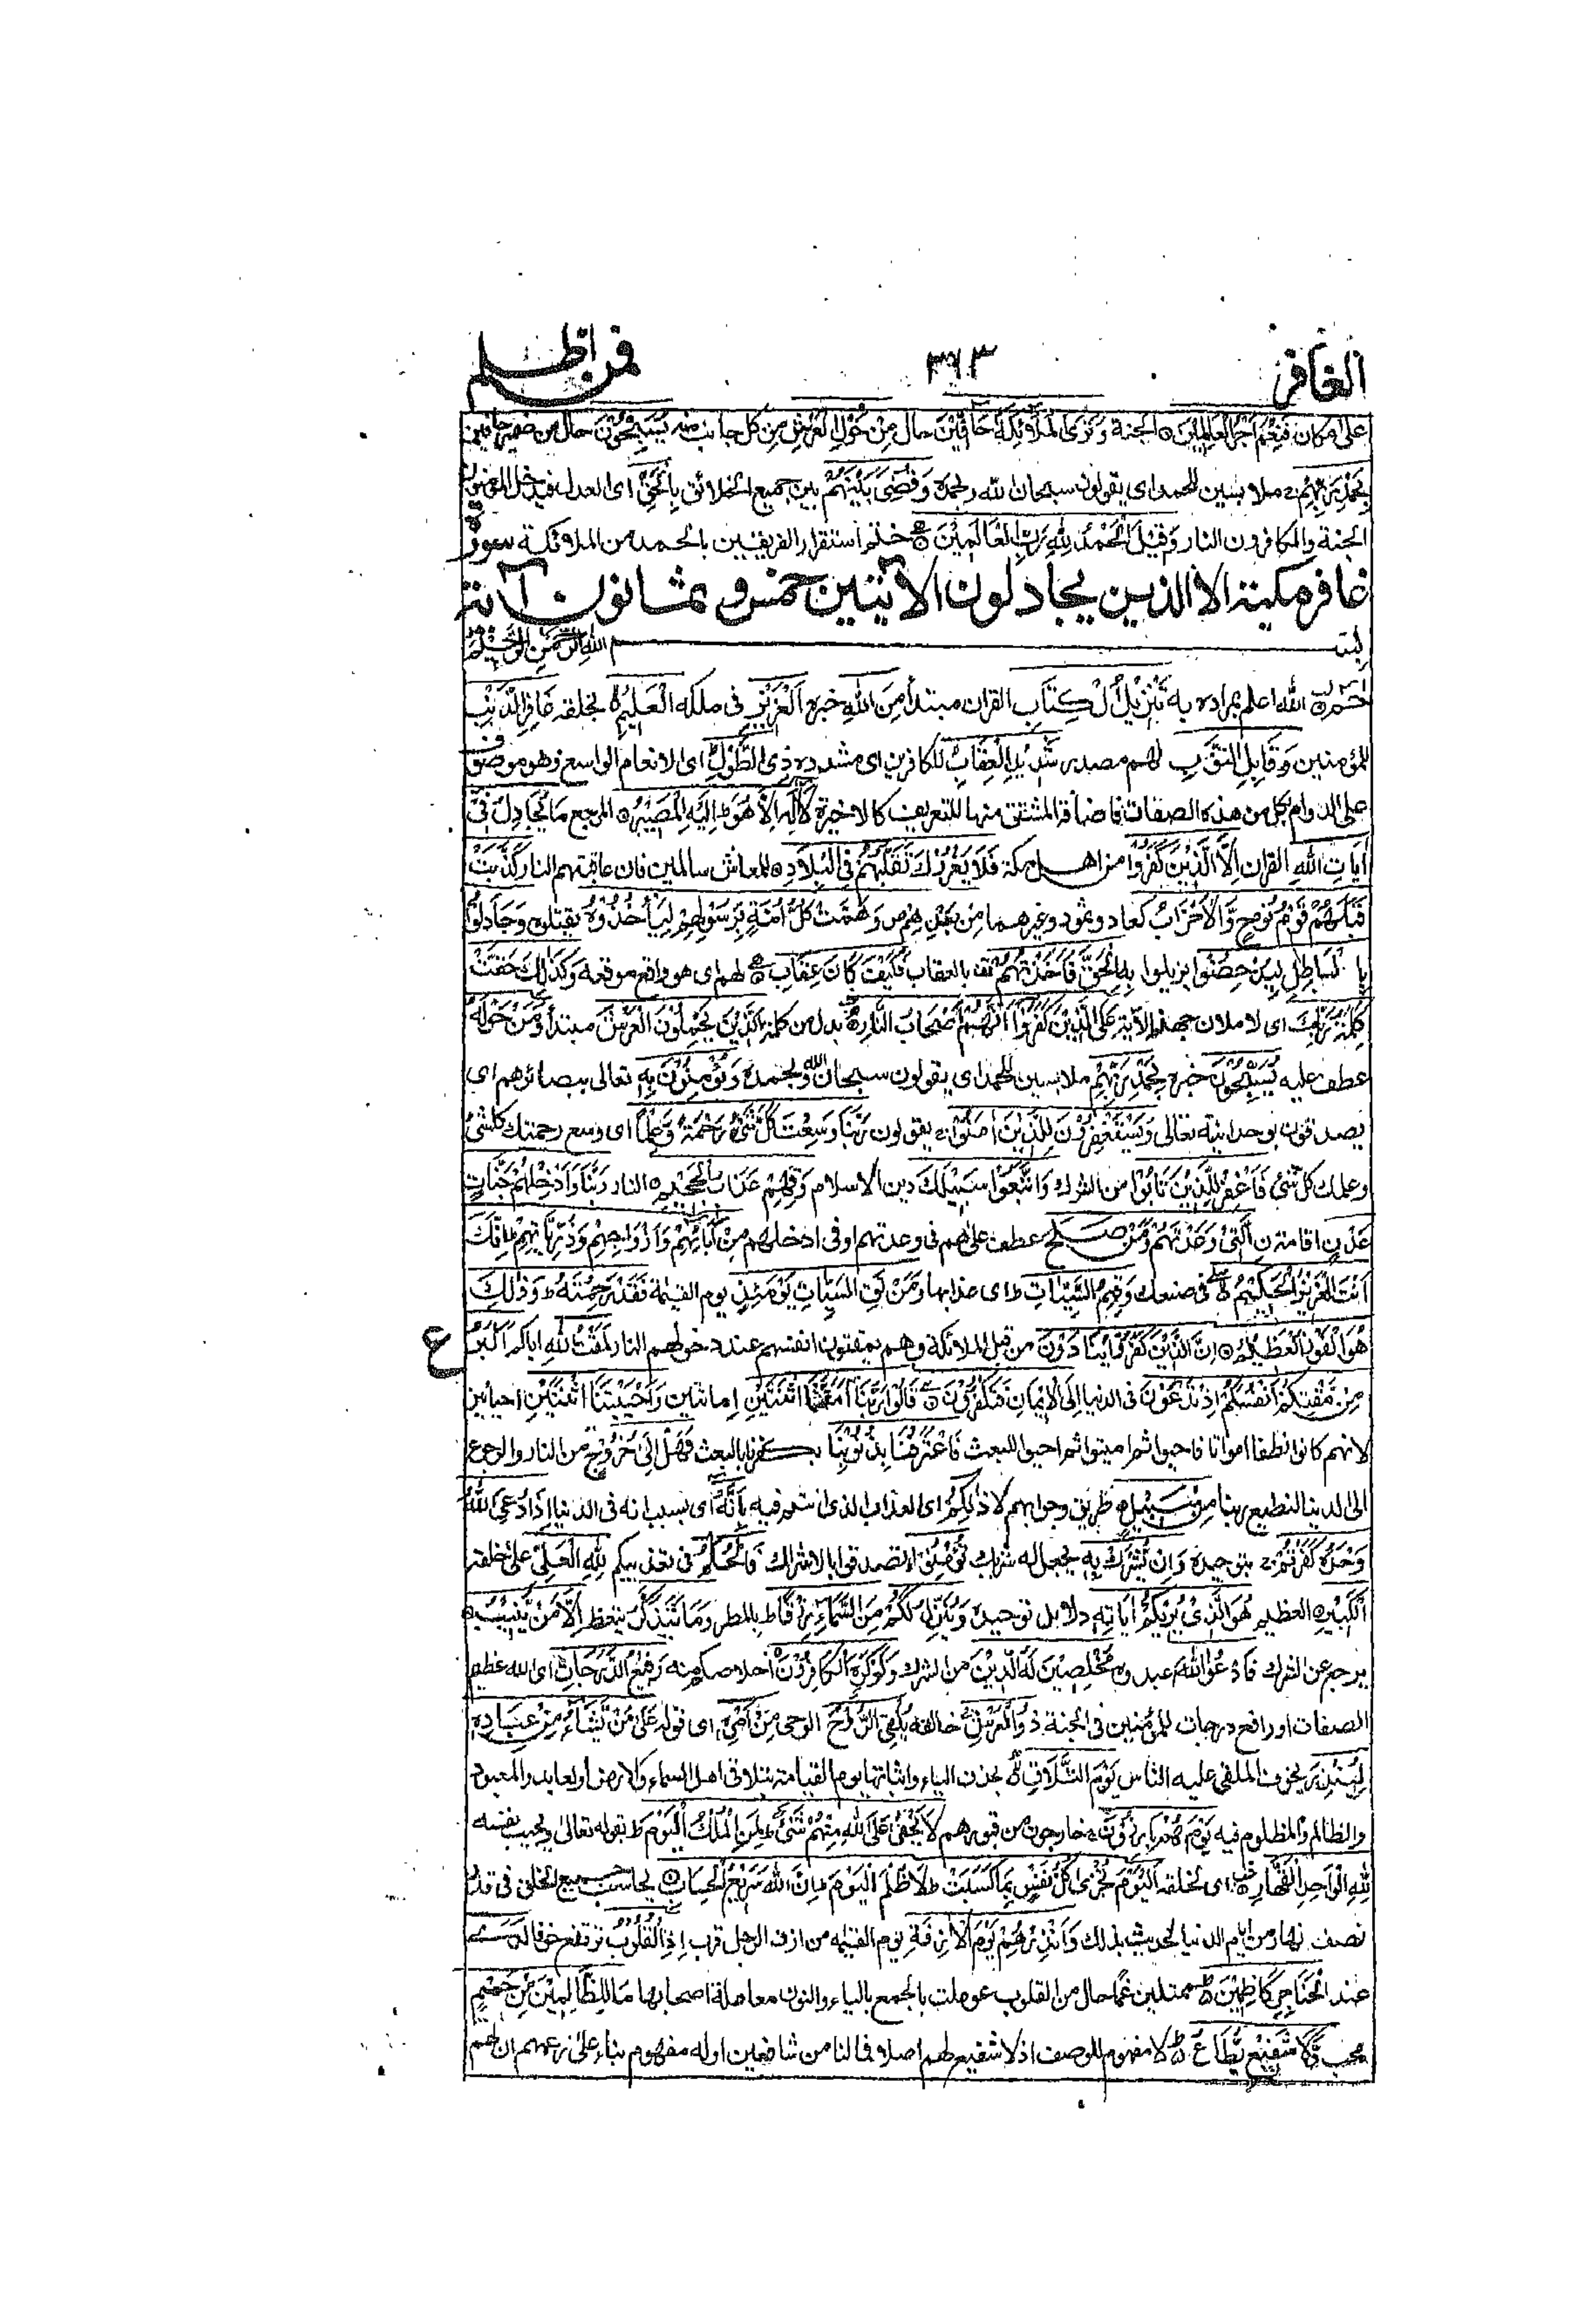 الغافر ٣٦٣ فمن اظلم
على مكان فَنِعْمَ اَجْرُ الْعَامِلِيْنَ ۝ الجنة وَتَرَى الْمَلَائِكَةَ حَافِّيْنَ حال مِنْ حَوْلِ الْعَرْشِ مِن كل جانب منه يُسَبِّحُوْنَ حال من ضمير حافين
بِحَمْدِ رَبِّهِمْ ملابسين للحمد اى يقولون سبحان الله وبحمده وَقُضِىَ بَيْنَهُمْ بين جميع الخلائق بِالْحَقِّ اى العدل فيدخل المؤمنون
الجنة والكافرون النار وَقِيْلَ الْحَمْدُ لِلّٰهِ رَبِّ الْعَالَمِيْنَ ۝ ختم استقرار الفريقين بالحمد من الملائكة سورة
غافر مكية الا الذين يجادلون الآيتين خمس وثمانون آية
بسم الله الرحمن الرحيم
حٰمۤ ۝ الله اعلم بمراده به تَنْزِيْلُ الْكِتَابِ القران مبتدأ مِنَ اللهِ خبره الْعَزِيْزِ فى ملكه الْعَلِيْمِ ۝ بخلقه غَافِرِ الذَّنْبِ
للمؤمنين وَقَابِلِ التَّوْبِ لهم مصدر شَدِيْدِ الْعِقَابِ للكافرين اى مشدده ذِى الطَّوْلِ اى الانعام الواسع وهو موصوف
على الدوام بكل من هذه الصفات فاضافة المشتق منها للتعريف كالاخيرة لَا اِلٰهَ اِلَّا هُوَ ط اِلَيْهِ الْمَصِيْرُ ۝ المرجع مَا يُجَادِلُ فِىْ
اٰيَاتِ اللهِ القران اِلَّا الَّذِيْنَ كَفَرُوْا من اهل مكة فَلَا يَغْرُرْكَ تَقَلُّبُهُمْ فِى الْبِلَادِ ۝ للمعاش سالمين فان عاقبتهم النار كَذَّبَتْ
قَبْلَهُمْ قَوْمُ نُوْحٍ وَّالْاَحْزَابُ كعاد وثمود وغيرهما مِنْ بَعْدِهِمْ ص وَهَمَّتْ كُلُّ اُمَّةٍ بِرَسُوْلِهِمْ لِيَأْخُذُوْهُ يقتلوه وَجَادَلُوْا
بِالْبَاطِلِ لِيُدْحِضُوْا يزيلوا بِهِ الْحَقَّ فَاَخَذْتُهُمْ قف بالعقاب فَكَيْفَ كَانَ عِقَابِ ۝ لهم اى هو واقع موقعه وَكَذٰلِكَ حَقَّتْ
كَلِمَةُ رَبِّكَ اى لاملان جهنم الآية عَلَى الَّذِيْنَ كَفَرُوْا اَنَّهُمْ اَصْحَابُ النَّارِ ۝ بدل من كلمة اَلَّذِيْنَ يَحْمِلُوْنَ الْعَرْشَ مبتدأ وَمَنْ حَوْلَهٗ
عطف عليه يُسَبِّحُوْنَ خبره بِحَمْدِ رَبِّهِمْ ملابسين للحمد اى يقولون سبحان الله وبحمده وَيُؤْمِنُوْنَ بِهٖ تعالى ببصائرهم اى
يصدقون بوحدانيته تعالى وَيَسْتَغْفِرُوْنَ لِلَّذِيْنَ اٰمَنُوْا يقولون رَبَّنَا وَسِعْتَ كُلَّ شَىْءٍ رَّحْمَةً وَّعِلْمًا اى وسع رحمتك كل شئ
وعلمك كل شئ فَاغْفِرْ لِلَّذِيْنَ تَابُوْا من الشرك وَاتَّبَعُوْا سَبِيْلَكَ دين الاسلام وَقِهِمْ عَذَابَ الْجَحِيْمِ ۝ النار رَبَّنَا وَاَدْخِلْهُمْ جَنَّاتِ
عَدْنِ اقامة نِ الَّتِىْ وَعَدْتَّهُمْ وَمَنْ صَلَحَ عطف على هم فى وعدتهم او فى ادخلهم مِنْ اٰبَائِهِمْ وَاَزْوَاجِهِمْ وَذُرِّيَّاتِهِمْ ط اِنَّكَ
اَنْتَ الْعَزِيْزُ الْحَكِيْمُ ۝ فى صنعك وَقِهِمُ السَّيِّئَاتِ ط اى عذابها وَمَنْ تَقِ السَّيِّئَاتِ يَوْمَئِذٍ يوم القيمة فَقَدْ رَحِمْتَهٗ ط وَذٰلِكَ
هُوَ الْفَوْزُ الْعَظِيْمُ ۝ اِنَّ الَّذِيْنَ كَفَرُوْا يُنَادَوْنَ من قبل الملائكة وهم يمقتون انفسهم عند دخولهم النار لَمَقْتُ اللهِ اياكم اَكْبَرُ
ع
مِنْ مَّقْتِكُمْ اَنْفُسَكُمْ اِذْ تُدْعَوْنَ فى الدنيا اِلَى الْاِيْمَانِ فَتَكْفُرُوْنَ ۝ قَالُوْا رَبَّنَا اَمَتَّنَا اثْنَتَيْنِ اماتتين وَاَحْيَيْتَنَا اثْنَتَيْنِ احيائين
لانهم كانوا نطفا امواتا فاحيوا ثم اميتوا ثم احيوا للبعث فَاعْتَرَفْنَا بِذُنُوْبِنَا بكفرنا بالبعث فَهَلْ اِلٰى خُرُوْجٍ من النار والرجوع
الى الدنيا لنطيع ربنا مِنْ سَبِيْلٍ ۝ طريق وجوابهم لا ذٰلِكُمْ اى العذاب الذى انتم فيه بِاَنَّهٗ اى بسبب انه فى الدنيا اِذَا دُعِىَ اللهُ
وَحْدَهٗ كَفَرْتُمْ ج بتوحيده وَاِنْ يُّشْرَكْ بِهٖ يجعل له شريك تُؤْمِنُوْا تصدقوا بالاشراك فَالْحُكْمُ فى تعذيبكم لِلّٰهِ الْعَلِىِّ على خلقه
الْكَبِيْرِ ۝ العظيم هُوَ الَّذِىْ يُرِيْكُمْ اٰيَاتِهٖ دلائل توحيده وَيُنَزِّلُ لَكُمْ مِّنَ السَّمَاءِ رِزْقًا ط بالمطر وَمَا يَتَذَكَّرُ يتعظ اِلَّا مَنْ يُّنِيْبُ ۝
يرجع عن الشرك فَادْعُوا اللهَ اعبدوه مُخْلِصِيْنَ لَهُ الدِّيْنَ من الشرك وَلَوْ كَرِهَ الْكَافِرُوْنَ ۝ اخلاصكم منه رَفِيْعُ الدَّرَجَاتِ اى الله عظيم
الصفات او رافع درجات المؤمنين فى الجنة ذُو الْعَرْشِ ج خالقه يُلْقِى الرُّوْحَ الوحى مِنْ اَمْرِهٖ اى قوله عَلٰى مَنْ يَّشَاءُ مِنْ عِبَادِهٖ
لِيُنْذِرَ يخوف الملقى عليه الناس يَوْمَ التَّلَاقِ ۝ بحذف الياء واثباتها يوم القيامة يتلاقى اهل السماء والارض والعابد والمعبود
والظالم والمظلوم فيه يَوْمَ هُمْ بَارِزُوْنَ ج خارجون من قبورهم لَا يَخْفٰى عَلَى اللهِ مِنْهُمْ شَىْءٌ ط لِمَنِ الْمُلْكُ الْيَوْمَ ط بقوله تعالى ويجيب نفسه
لِلّٰهِ الْوَاحِدِ الْقَهَّارِ ۝ اى لخلقه اَلْيَوْمَ تُجْزٰى كُلُّ نَفْسٍ بِمَا كَسَبَتْ ط لَا ظُلْمَ الْيَوْمَ ط اِنَّ اللهَ سَرِيْعُ الْحِسَابِ ۝ يحاسب جميع الخلق فى قدر
نصف نهار من ايام الدنيا لحديث بذلك وَاَنْذِرْهُمْ يَوْمَ الْاٰزِفَةِ يوم القيمة من ازف الرحيل قرب اِذِ الْقُلُوْبُ ترتفع خوفا لَدَى
عند الْحَنَاجِرِ كَاظِمِيْنَ ۝ ممتلين غما حال من القلوب عوملت بالجمع بالياء والنون معاملة اصحابها مَا لِلظَّالِمِيْنَ مِنْ حَمِيْمٍ
محب وَّلَا شَفِيْعٍ يُّطَاعُ ۝ لا مفهوم للوصف اذ لا شفيع لهم اصلا فما لنا من شافعين او له مفهوم بناء على زعمهم ان لهم